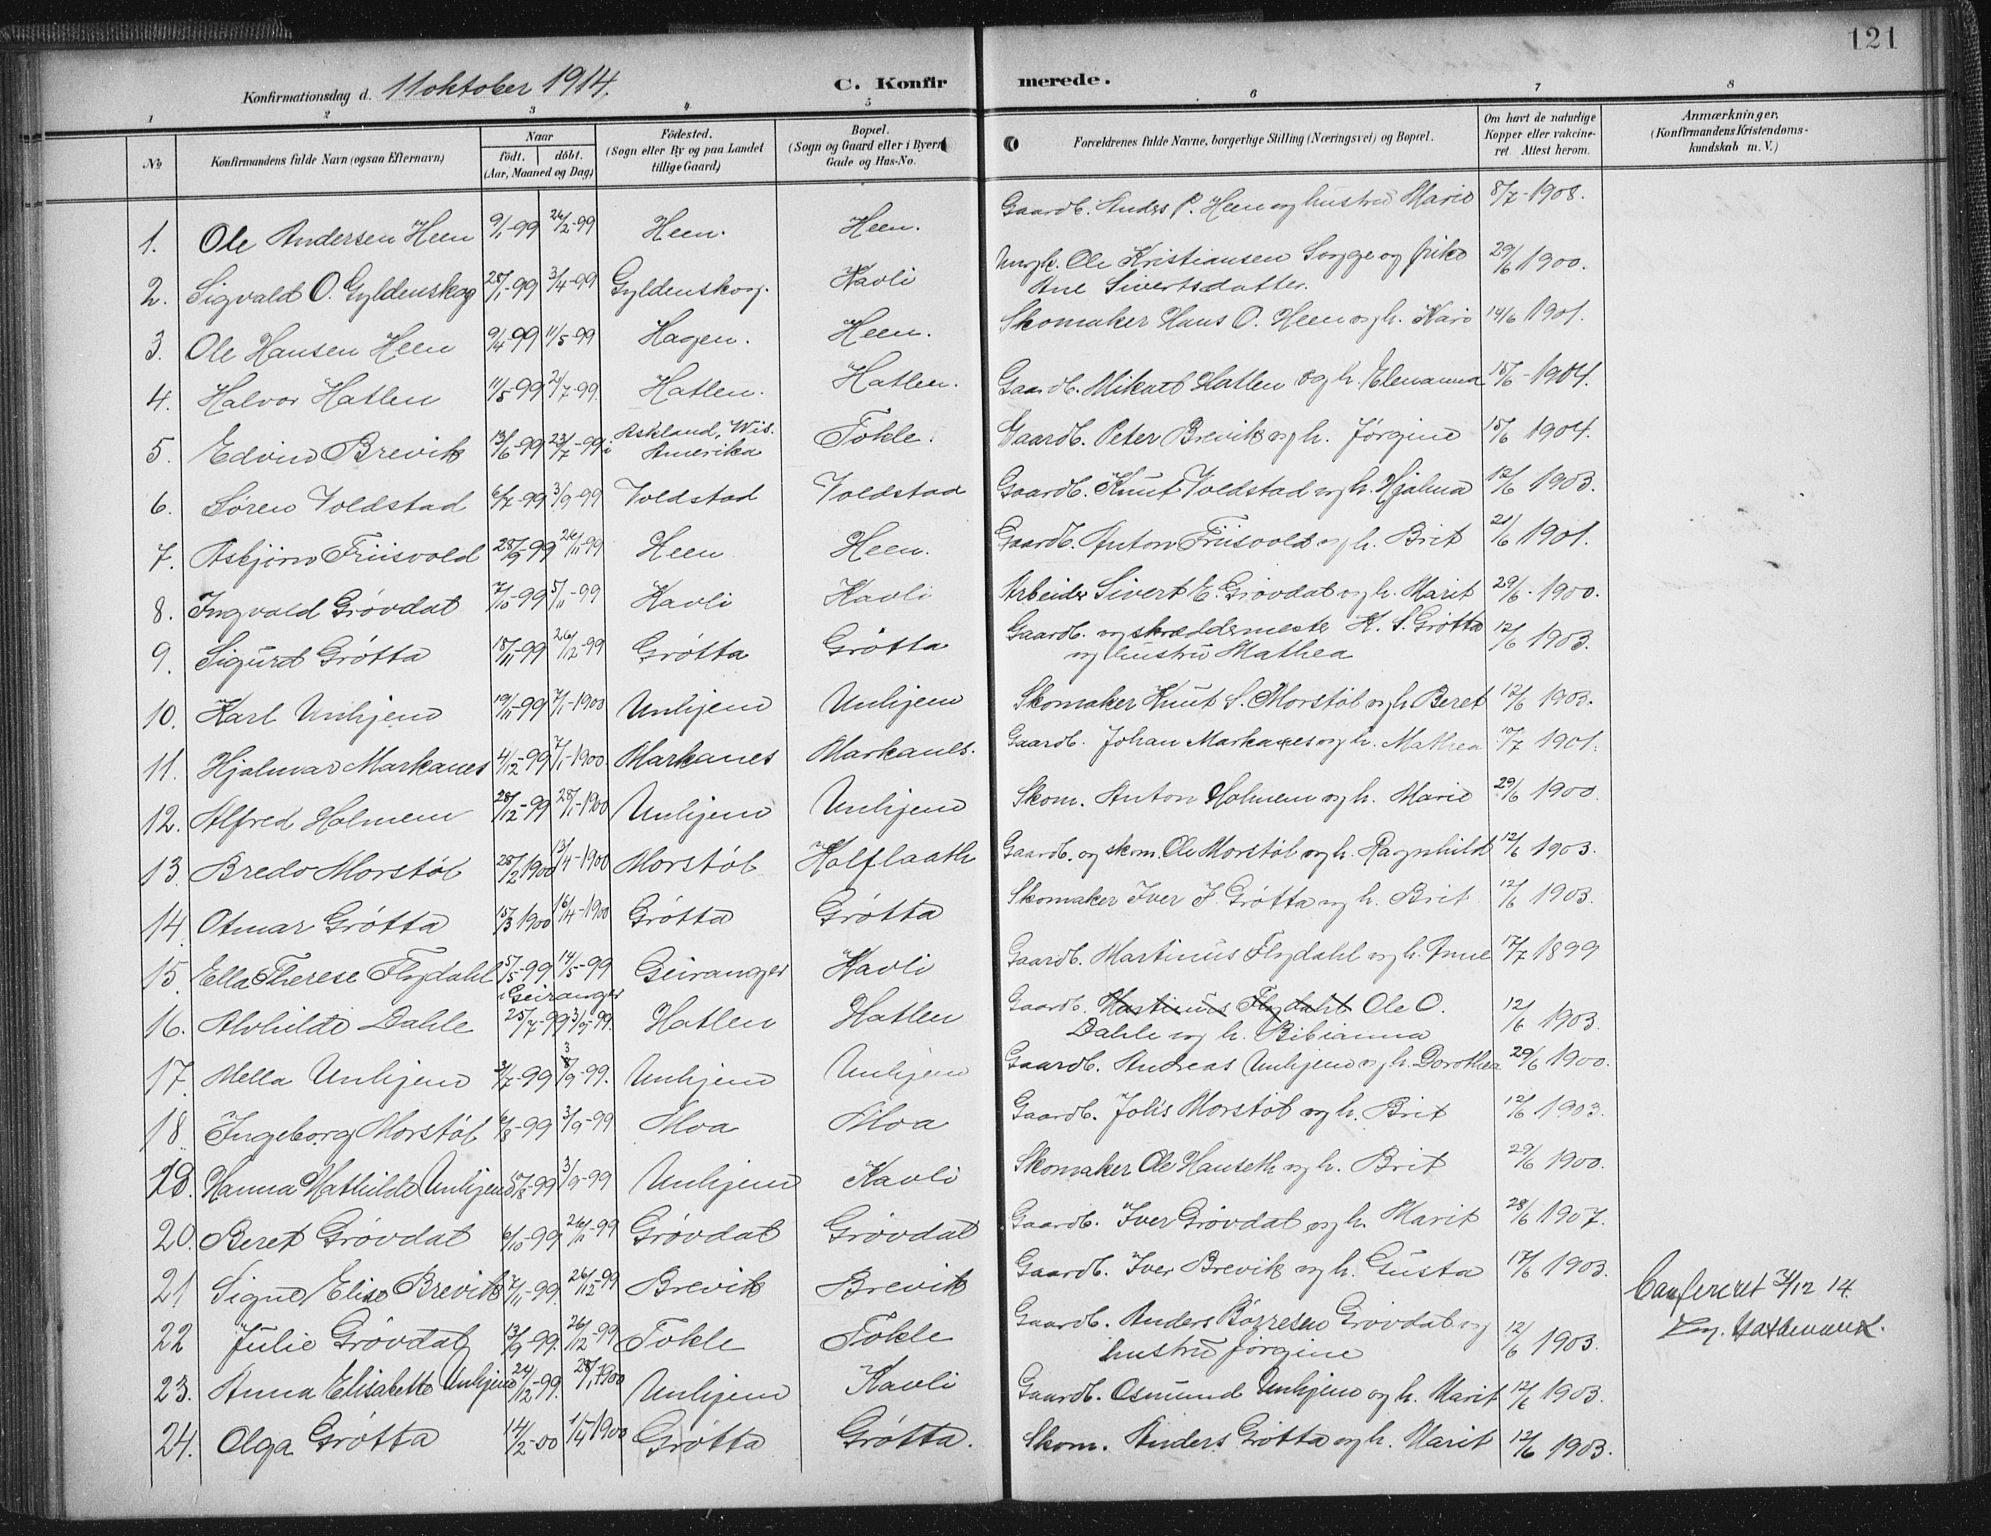 121
Konfirmationsdag d. 11 oktober 1914. C. Konfirmerede.
1 2 3 4 5 6 7 8
No Konfirmandens fulde Navn (ogsaa Efternavn) Naar födt. döbt. (Aar, Maaned og Dag) Födested. (Sogn eller By og paa Landet tillige Gaard) Bopæl. (Sogn og Gaard eller i Byern Gade og Hus-No. Forældrenes fulde Navne, borgerlige Stilling (Næringsvei) og Bopæl. Om havt de naturlige Kopper eller vakcineret. Attest herom. Anmærkninger, (Konfirmandens Kristendomskundskab m. V.)
1. Ole Andersen Heen 9/1-99 26/2-99 Heen. Heen. Gaardb. Anders P. Heen og hustru Marie 8/7-1908.
2. Sigvald O. Gyldenskog 28/1-99 3/4-99 Gyldenskog. Kavli Ungk. Ole Kristiansen Sogge og pike 29/6 1900.
Ane Sivertsdatter.
3. Ole Hansen Heen 9/4-99 11/5-99 Hagen. Heen. Skomaker Hans O. Heen og h. Kari 14/6 1901.
4. Halvor Hatlen 11/5-99 2/7-99. Hatlen. Hatlen. Gaardb. Mikael Hatlen og h. Elenanna 15/6-1904.
5. Edvin Brevik 13/6-99 23/7-99 i Askland, Wis. Amerika Tokle. Gaardb. Peter Brevik og h. Jørgine 15/6 1904.
6. Søren Voldstad 6/7-99 3/9-99 Voldstad Voldstad Gaardb. Knut Voldstad og h. Hjalma 12/6 1903.
7. Asbjørn Friisvold 28/9-99 26/11-99 Heen Heen. Gaardb. Anton Friisvold og h. Brit 21/6 1901.
8. Ingvald Grøvdal 7/10-99 5/11-99 Kavli Kavli Arbeider Sivert E. Grøvdal og h. Marit 29/6-1900.
9. Sigurd Grøtta 18/11-99 26/12-99 Grøtta Grøtta Gaardb. og skræddermester K. S. Grøtta 12/6 1903.
og hustru Mathea
10. Karl Unhjem 19/11-99 7/1-1900 Unhjem Unhjem Skomaker Knut S. Morstøl og h. Beret 12/6 1903.
11. Hjalmar Markanes 4/12-99 7/1-1900. Markanes Markanes. Gaardb. Johan Markanes og h. Mathea 10/7 1901.
12. Alfred Holmem 28/12-99 28/1-1900 Unhjem Unhjem Skom. Anton Holmem og h. Marie 29/6 1900.
13. Bredo Morstøl 28/2 1900 13/4-1900 Morstøl Kolflaath Gaardb. og skom. Ole Morstøl og h. Ragnhild 12/6 1903.
14. Otmar Grøtta 15/3 1900 16/4-1900 Grøtta Grøtta Skomaker Iver J. Grøtta og h. Brit 12/6 1903.
15. Ella Therese Flydahl 5/5-99 14/5-99 Geiranger Kavli Gaardb. Martinus Flydahl og h. Anne 17/7 1899
i Geiranger
16. Alvhilde Dahle 25/7-99 3/9-99. Hatlen Hatlen Gaardb. Martinus Flydahl Ole O. 12/6 1903.
Dahle og h. Bibianna
17. Mella Unhjem 2/7-99 3/9-99. Unhjem Unhjem Gaardb. Andreas Unhjem og h. Dorothea 29/6 1900.
18. Ingeborg Morstøl 6/8-99 3/9-99 Moa Moa Gaardb. Johs Morstøl og h. Brit 12/6 1903.
19. Hanna Mathilde Unhjem 15/8-99 3/9-99 Unhjem Kavli Skomaker Ole Hanseth og h. Brit 29/6 1900.
20. Beret Grøvdal 6/10-99 26/11-99 Grøvdal Grøvdal Gaardb. Iver Grøvdal og h. Marit 28/6 1907.
21 Signe Elise Brevik 7/11-99. 26/12-99 Brevik Brevik Gaardb. Iver Brevik og h. Gusta 17/6 1903.
Confereret 31/12 14.
22 Julie Grøvdal 13/9-99. 26/12-99 Tokle Tokle Gaardb. Anders Børresen Grøvdal og 12/6 1903.
hustru Jørgine
23. Anna Elisabette Unhjem 24/12-99. 28/1 1900 Unhjem Kavli Gaardb. Osmund Unhjem og h. Marit 12/6 1903.
24. Olga Grøtta 14/2-00 1/4 1900 Grøtta Grøtta. Skom. Anders Grøtta og h. Marit 12/6 1903.